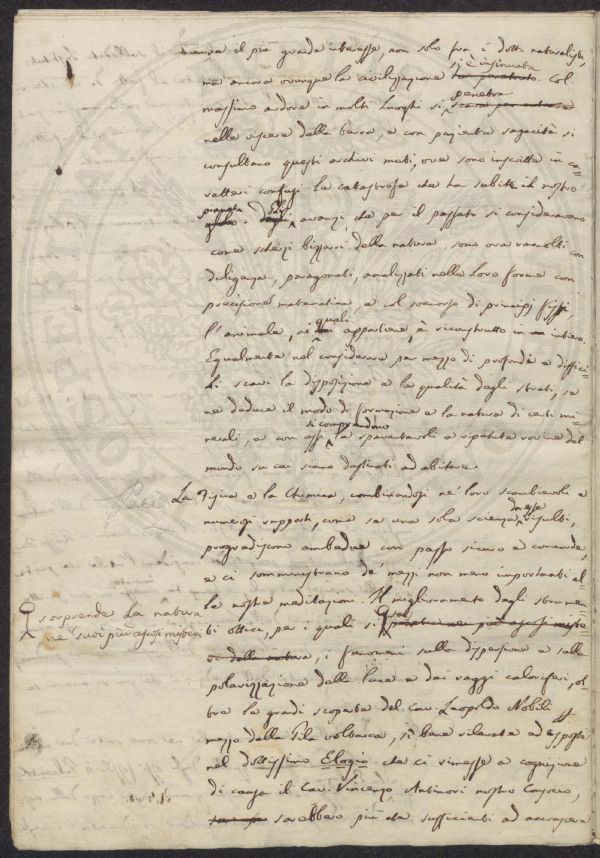 il più grande interesse, non solo fra i dotti naturalisti,
ma ancora ovunque la civilizzazione si è insinuata. Col
massimo ardore in molti luoghi si penetra
nelle viscere della terra, e con paziente sagacità si
consultano questi archivi muti, ove sono inscritte in ca-
ratteri confusi le catastrofe che ha subite il nostro
pianeta. Gli avanzi, che per il passato si consideravano
come scherzi bizzarri della natura, sono ora raccolti con
diligenza, paragonati, analizzati nelle loro forme con
precisione matematica, e col soccorso di principj fissi,
l'animale, ai quali appartiene, è ricostrutto in intiero.
Egualmente nel considerare per mezzo di profondi e diffici-
li scavi la disposizione e la qualità degli strati, se
ne deduce il modo di formazione e la natura di certi mi-
nerali, e con essi si comprendono le spaventevoli e ripetute rovine del
mondo su cui siamo destinati ad abitare.
La Fisica e la Chimica, combinandosi ne' loro scambievoli e
numerosi rapporti, come se una sola scienza da esse risulti,
progrediscono ambedue con passo sicuro e concorde,
e ci somministrano de' mezzi non meno importanti al-
la nostre meditazioni. Il miglioramento degli strumen-
ti ottici, per i quali si
sorprende la natura
ne' suoi più ascosi misteri
della natura, i fenomeni sulla dispersione e sulla
polarizzazione della luce e dei raggi caloriferi, ol-
tre le grandi scoperte del Cav. Leopoldo Nobili
mezzo della Pila voltaica, sì bene rilevate ed esposte
nel dottissimo Elogio che ci rimesse a cognizione
di causa il Cav. Vincenzo Antinori nostro Consocio,
sarebbero più che sufficienti ad accrescere